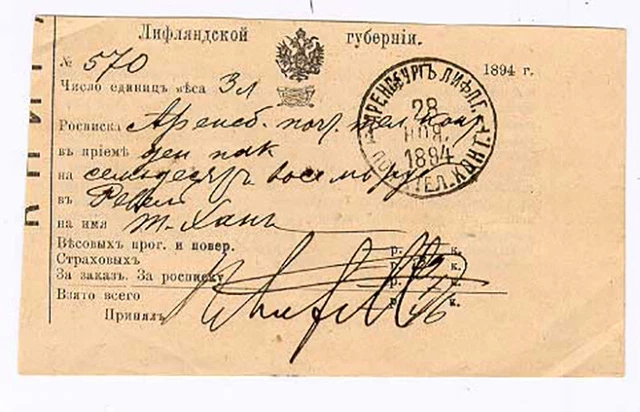 Лифляндской губерніи.
№ 570
1894 г.
Число единицъ вѣса 3 л
АРЕНСБУРГЪ ЛИФЛ. Г.
28
НОЯ.
1894
ПОЧ. ТЕЛ. КОНТ.
Росписка Аренсб. почт. тел. конт.
въ пріемѣ ден пак
на семьдесятъ восемь руб
въ Ревел
на имя Т. Ханъ
Вѣсовыхъ прог. и повер. р. к.
Страховыхъ р. к.
За заказ. За росписку р. к.
Взято всего р. к.
Принялъ